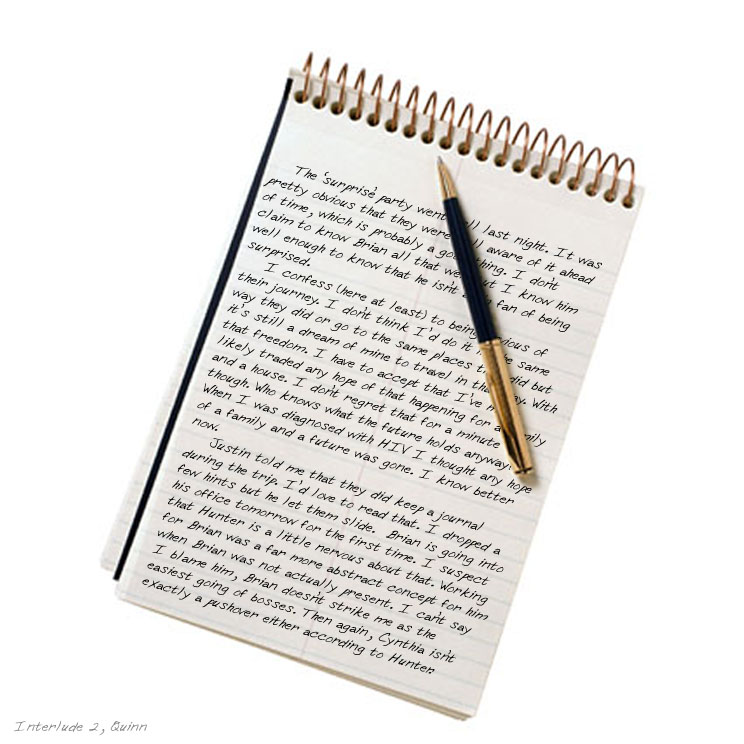 The 'surprise' party went all last night. It was
pretty obvious that they were all aware of it ahead
of time, which is probably a good thing. I don't
claim to know Brian all that well but I know him
well enough to know that he isn't a fan of being
surprised.
I confess (here at least) to being envious of
their journey. I don't think I'd do it the same
way they did or go to the same places they did but
it's still a dream of mine to travel in that way. With
that freedom. I have to accept that I've
likely traded any hope of that happening for a family
and a house. I don't regret that for a minute
though. Who knows what the future holds anyway.
When I was diagnosed with HIV I thought any hope
of a family and a future was gone. I know better
now.
Justin told me that they did keep a journal
during the trip. I'd love to read that. I dropped a
few hints but he let them slide. Brian is going into
his office tomorrow for the first time. I suspect
that Hunter is a little nervous about that. Working
for Brian was a far more abstract concept for him
when Brian was not actually present. I can't say
I blame him, Brian doesn't strike me as the
easiest going of bosses. Then again, Cynthia isn't
exactly a pushover either according to Hunter.
Interlude 2, Quinn